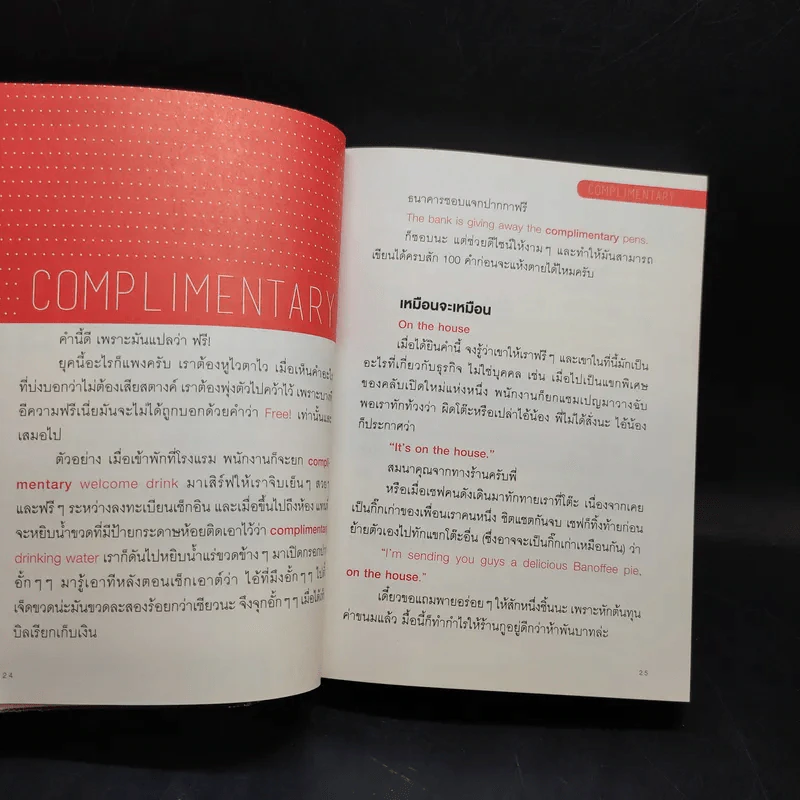 COMPLIMENTARY
คำนี้ดี เพราะมันแปลว่า ฟรี!
ยุคนี้อะไรก็แพงครับ เราต้องหูไวตาไว เมื่อเห็นคำอะไร
ที่บ่งบอกว่าไม่ต้องเสียสตางค์ เราต้องพุ่งตัวไปคว้าไว้ เพราะบาง
อีความฟรีเนี่ยมันจะไม่ได้ถูกบอกด้วยคำว่า Free! เท่านั้น
เสมอไป
ตัวอย่าง เมื่อเข้าพักที่โรงแรม พนักงานก็จะยก compli-
mentary welcome drink มาเสิร์ฟให้เราจิบเย็นๆ
และฟรีๆ ระหว่างลงทะเบียนเช็กอิน และเมื่อขึ้นไปถึงห้อง แทนที่
จะหยิบน้ำขวดที่มีป้ายกระดาษห้อยติดเอาไว้ว่า complimentary
drinking water เราก็ดันไปหยิบน้ำแร่ขวดข้างๆ มาเปิดกรอกปาก
อั้กๆๆ มารู้เอาทีหลังตอนเช็กเอาต์ว่า ไอ้ที่มึงอั้กๆๆ ไป
เจ็ดขวดน่ะมันขวดละสองร้อยกว่าเชียวนะ จึงจุกอั้กๆๆ เมื่อได้
บิลเรียกเก็บเงิน
24
COMPLIMENTARY
ธนาคารชอบแจกปากกาฟรี
The bank is giving away the complimentary pens.
ก็ชอบนะ แต่ช่วยดีไซน์ให้งามๆ และทำให้มันสามารถ
เขียนได้ครบสัก 100 คำก่อนจะแห้งตายได้ไหมครับ
เหมือนจะเหมือน
On the house
เมื่อได้ยินคำนี้ จงรู้ว่าเขาให้เราฟรีๆ และเขาในที่นี้มักเป็น
อะไรที่เกี่ยวกับธุรกิจ ไม่ใช่บุคคล เช่น เมื่อไปเป็นแขกพิเศษ
ของคลับเปิดใหม่แห่งหนึ่ง พนักงานก็ยกแชมเปญมาวางฉับ
พอเราทักท้วงว่า ผิดโต๊ะหรือเปล่าไอ้น้อง พี่ไม่ได้สั่งนะ ไอ้น้อง
ก็ประกาศว่า
"It's on the house."
สมนาคุณจากทางร้านครับพี่
หรือเมื่อเชฟคนดังเดินมาทักทายเราที่โต๊ะ เนื่องจากเคย
เป็นกิ๊กเก่าของเพื่อนเราคนหนึ่ง ชิตแชตกันจบ เชฟก็ทิ้งท้ายก่อน
ย้ายตัวเองไปทักแขกโต๊ะอื่น (ซึ่งอาจจะเป็นกิ๊กเก่าเหมือนกัน) ว่า
"I'm sending you guys a delicious Banoffee pie,
on the house."
เดี๋ยวขอแถมพายอร่อยๆ ให้สักหนึ่งชิ้นนะ เพราะหักต้นทุน
ค่าขนมแล้ว มื้อนี้ก็ทำกำไรให้ร้านกูอยู่ดีกว่าห้าพันบาทล่ะ
25